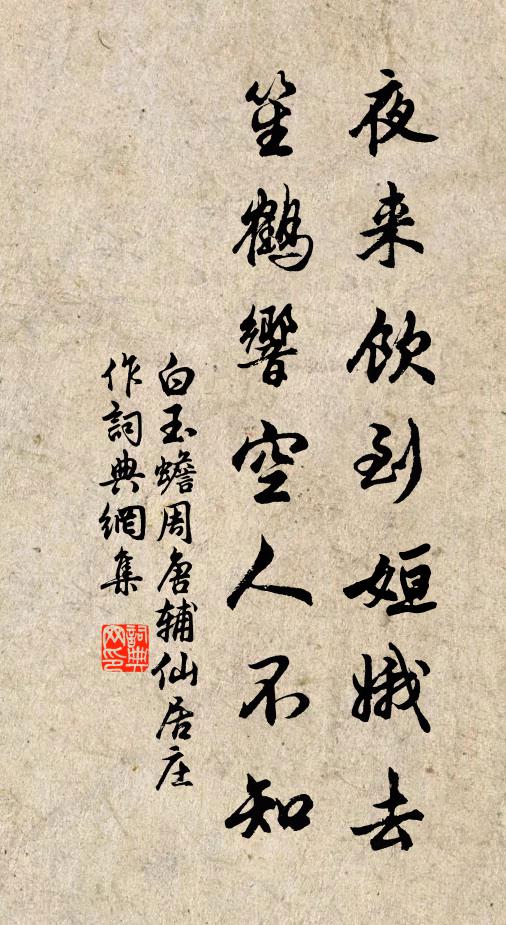 夜来飲到姮娥去
笙鶴響空人不知
白玉蟾周唐輔仙居庄
作詞典網集
詞典网印